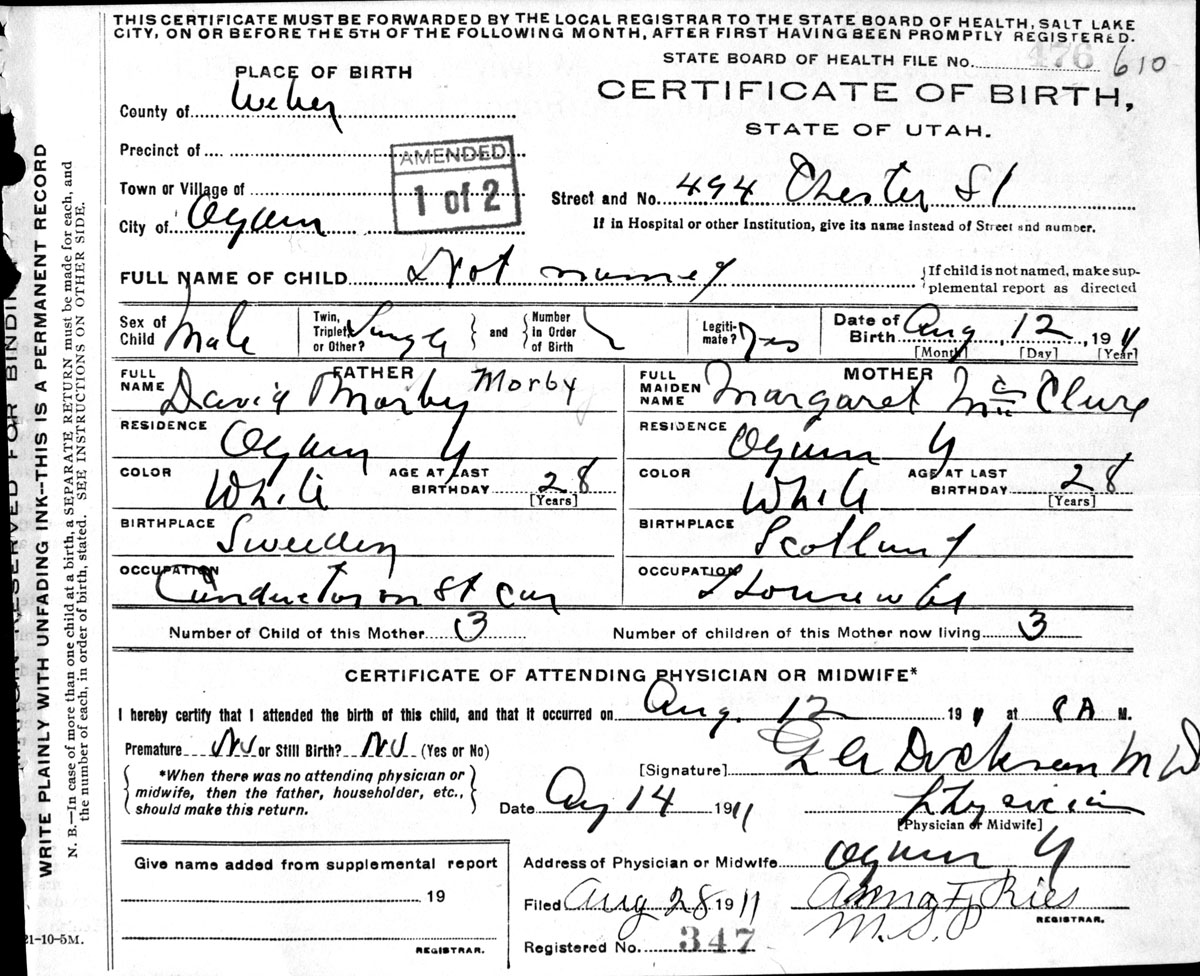 THIS CERTIFICATE MUST BE FORWARDED BY THE LOCAL REGISTRAR TO THE STATE BOARD OF HEALTH, SALT LAKE
CITY, ON OR BEFORE THE 5TH OF THE FOLLOWING MONTH, AFTER FIRST HAVING BEEN PROMPTLY REGISTERED.
STATE BOARD OF HEALTH FILE No. 476 610
PLACE OF BIRTH
CERTIFICATE OF BIRTH,
STATE OF UTAH.
County of Weber
Precinct of
AMENDED
1 of 2
Town or Village of
Street and No. 494 Chester St
City of Ogden
If in Hospital or other Institution, give its name instead of Street and number.
FULL NAME OF CHILD Not named
{If child is not named, make sup-
plemental report as directed
Sex of Child Male
Twin, Triplet, or Other? Single } and { Number in Order of Birth
Legiti-mate? Yes
Date of Birth Aug, 12, 1911
[Month] [Day] [Year]
FATHER
FULL NAME David Morby Morby
MOTHER
FULL MAIDEN NAME Margaret McClure
RESIDENCE Ogden U
RESIDENCE Ogden U
COLOR White AGE AT LAST BIRTHDAY 28 [Years]
COLOR White AGE AT LAST BIRTHDAY 28 [Years]
BIRTHPLACE Sweeden
BIRTHPLACE Scotland
OCCUPATION Conductor on St Car
OCCUPATION Housewife
Number of Child of this Mother 3
Number of children of this Mother now living 3
CERTIFICATE OF ATTENDING PHYSICIAN OR MIDWIFE*
I hereby certify that I attended the birth of this child, and that it occurred on Aug. 12 1911 at 8 A M.
Premature No or Still Birth? No (Yes or No)
*When there was no attending physician or
midwife, then the father, householder, etc.,
should make this return.
[Signature] Dickson M D
Date Aug 14 1911
Physician
[Physician or Midwife]
Give name added from supplemental report
19
REGISTRAR.
Address of Physician or Midwife Ogden U
Filed Aug 28 1911 Anna F. Ries
M.S.P
REGISTRAR.
Registered No. 347
21-10-5M.
MARGIN RESERVED FOR BINDING
WRITE PLAINLY WITH UNFADING INK--THIS IS A PERMANENT RECORD
N. B.—In case of more than one child at a birth, a SEPARATE RETURN must be made for each, and
the number of each, in order of birth, stated. SEE INSTRUCTIONS ON OTHER SIDE.